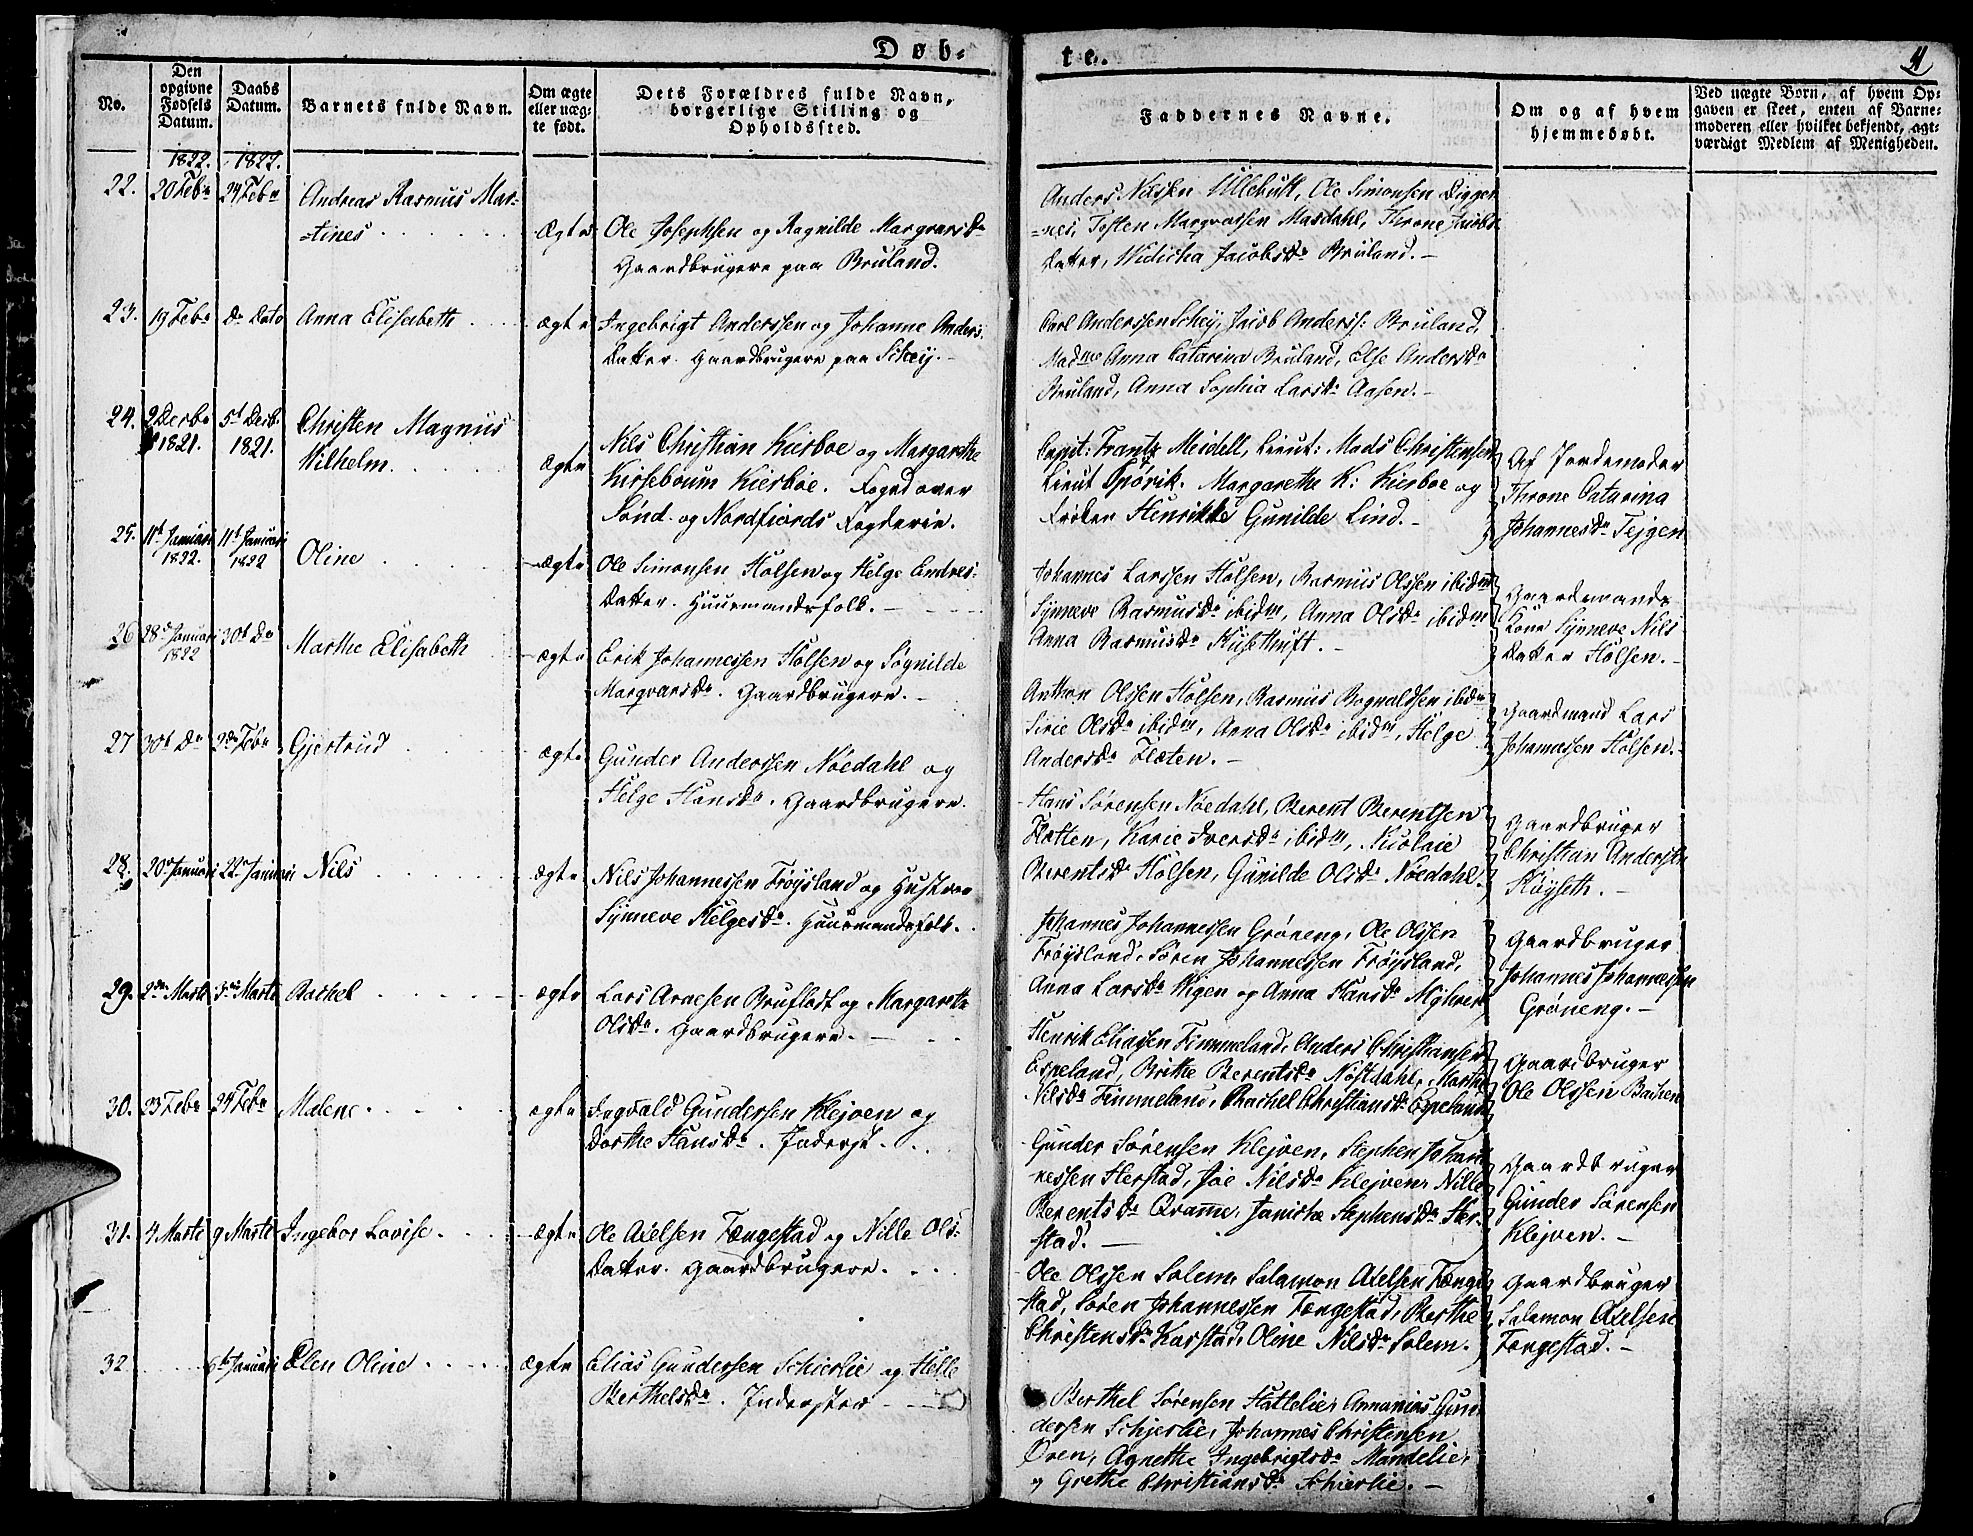 Døb-
te.
No.
Den opgivne Fødsels Datum.
Daabs Datum.
Barnets fulde Navn.
Om ægte eller uægte født.
Dets Forældres fulde Navn, borgerlige Stilling og Opholdssted.
Faddernes Navne.
Om og af hvem hjemmedøbt.
Ved uægte Børn, af hvem Opgaven er skeet, enten af Barnemoderen eller hvilket bekjendt, agtværdigt Medlem af Menigheden.
1822. 1822.
22. 20 Feb. 24 Feb. Andreas Rasmus Mar-
tines
Ægte
Ole Josephsen og Ragnilde Margvarsd.
Gaardbrugere paa Bruland.
Anders Ole Simonsen Digger
nes, Tosten Marqvatsen Masdahl, Throne Jacobs
Datter, Jacobsd. Bruland.
23. 19 Feb. D. Dato Anna Elisabeth
ægte
Ingebrigt Anderssen og Johanne Anders
Datter. Gaardbrugere paa Schey.
Carl Anderssen Schey, Jacob Anderss: Bruland,
Madme Anna Catarina Bruland, Else Andersd.
Bruland, Anna Sophia Larsd. Aasen.
24. 2 Decb. 1821. 5t Decb. 1821. Christen Magnus
Wilhelm.
Ægte
Nils Christian Kierboe og Margarethe
Kierboe. Foged over
Sønd- og Nordfjords Fogderie.
Capit: Frantz Meidell, Lieut: Mads Christensen
Lieut Margarethe K: Kierboe og
Frøken Henrikke Gunilde Lind.
Af Jordemoder
Throne Catarina
Johannesd. Tejgen
25. 11t Januari 1822. 11t Januari 1822 Oline
ægte
Ole Simonsen Holsen og Helge Endres-
Datter. Huusmandsfolk.
Johannes Larssen Holsen, Rasmus Olssen ibidm
Synneve Rasmusd. ibidm, Anna Olsd. ibidm
Anna Rasmusd.
Gaardmands
Kone Synneve Nils
Datter Holsen.
26 28d Januari 1822 30t D. Marthe Elisabeth
ægte
Erik Johannessen Holsen og Sognilde
Marqvarsd. Gaardbrugere.
Anthon Olssen Holsen, Rasmus Rognaldssen ibidm
Sirie Olsd. ibidm, Anna Olsd. ibidm, Helge
Andersd. Flæten.
Gaardmand Lars
Johannessen Holsen.
27 30t D. 2d Feb. Gjertrud
ægte
Gunder Anderssen Nøedahl og
Helge Hansd. Gaardbrugere.
Hans Sørensen Nøedahl, Berent Berentsen
Flatten, Karie Iversd. ibidm, Nicolaie
Berentsd. Holsen, Gunilde Olsd. Nøedahl.
Gaardbruger
Christian Andersen
Høyseth.
28. 20 Januari 22 Januari Nils
ægte
Nils Johannessen Frøysland og Hustroe
Synneve Helgesd. Huusmandsfolk.
Johannes Johannessen Grøneng, Ole Olssen
Frøysland, Søren Johannessen Frøysland,
Anna Larsd. Wigen og Anna Hansd. Myhren
Gaardbruger
Johannes Johannessen
Grøneng.
29. 2den Marti 3die Marti Rachel
ægte
Lars Arnesen Bruflodt og Margarethe
Olsd. Gaardbrugere.
Henrik Eliassen Fimmeland, Anders Christiansen
Espeland, Brithe Berentsd. Nøstdahl, Marthe
Nilsd. Fimmeland, Rachel Christiansd. Espeland
Gaardbruger
Ole Olssen Bachen
30. 23 Feb. 24 Feb. Malene
ægte
Ingvald Gunderssen Klejven og
Dorthe Hansd. Inderst.
Gunder Sørensen Klejven, Stephen Johan-
nessen Herstad, Joe Nilsd. Klejven, Nille
Berentsd. Qvamme, Janicha Stephensd. Her-
stad.
Gaardbruger
Gunder Sørensen
Klejven.
31. 4 Marti 9 Marti Ingebor Lovise.
ægte
Ole Axelsen Fængestad og Nille Ols-
Datter. Gaardbrugere.
Ole Olssen Solem, Salamon Axelsen Fænge
stad, Søren Johannessen Fængestad, Berthe
Christensd. Karstad, Oline Nilsd. Solem.
Gaardbruger
Salamon Axelsen
Fængestad.
32 6te Januari Elen Oline
ægte
Elias Gundersen Schierlie og Helle
Berthelsd. Inderster
Berthel Sørensen Hatlelie, Annanias Gun-
dersen Schjerlie, Johannes Christensen
Øren, Agnethe Ingebrigtsd. Mandelie,
og Grethe Christiansd. Schierlie.